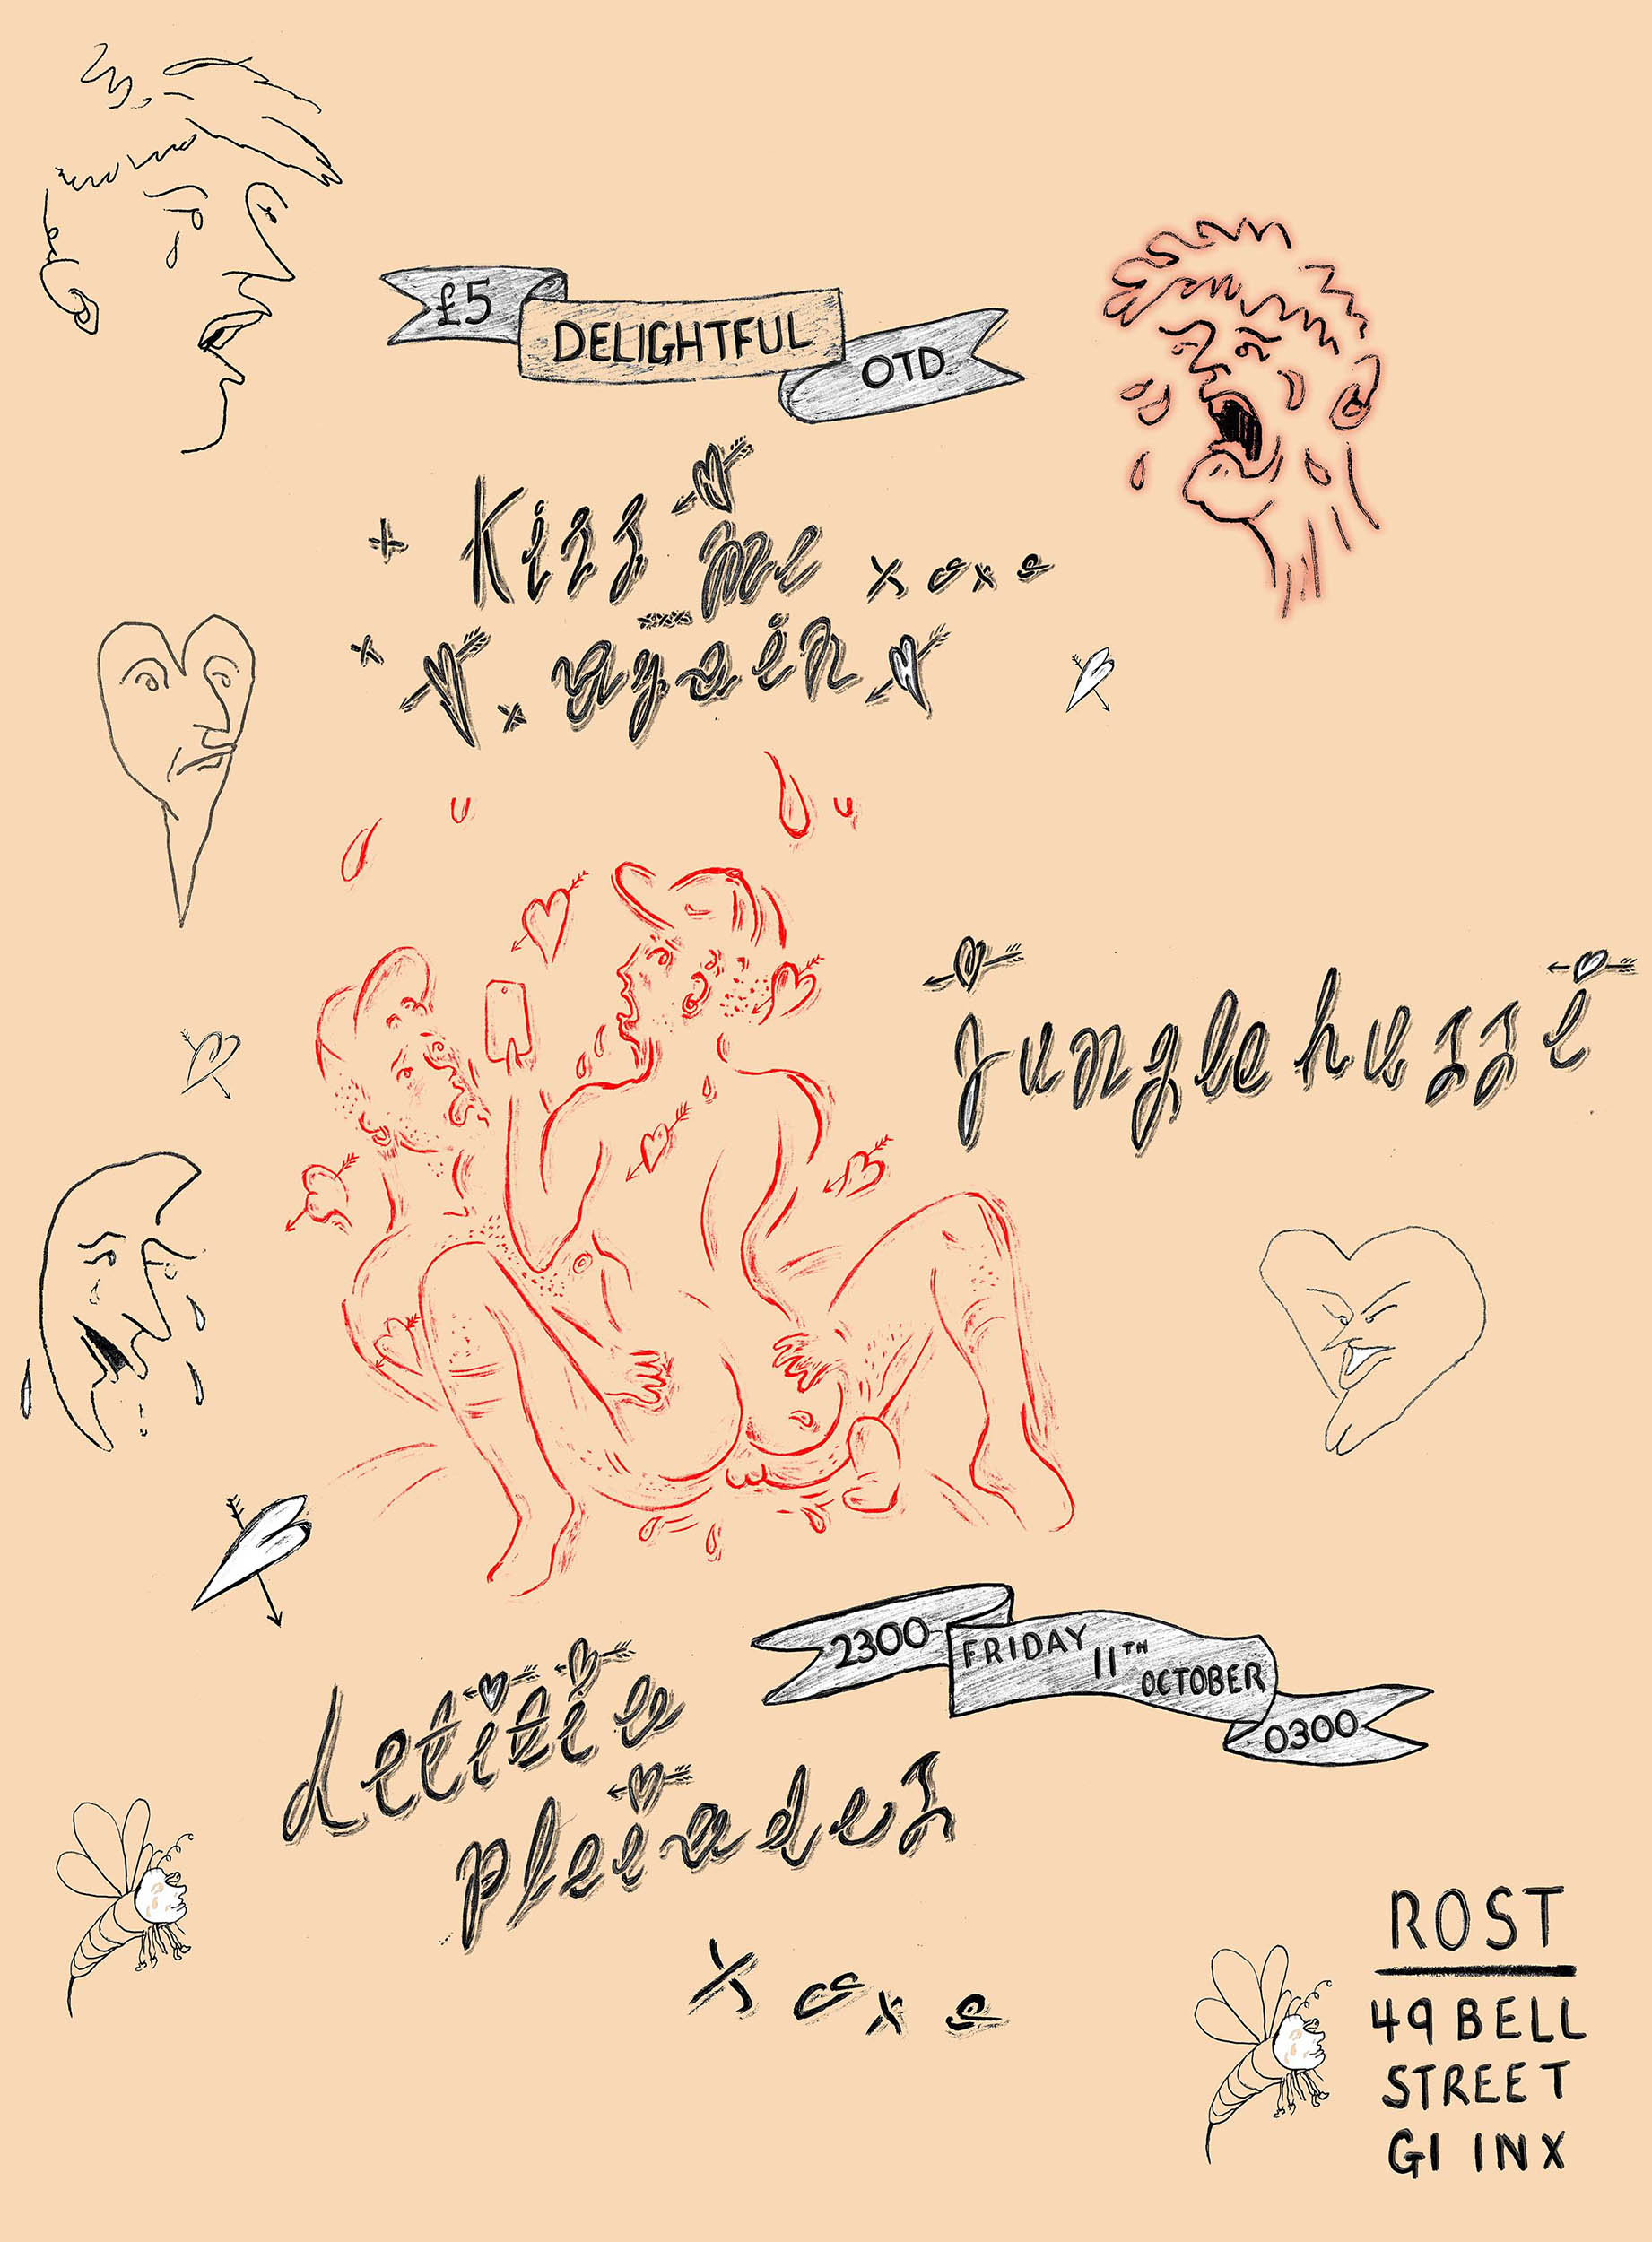 £5
DELIGHTFUL
OTD
Kiss me xoxo
again
junglehussi
Letitia
pleiades
xoxo
2300
FRIDAY 11TH OCTOBER
0300
ROST
49 BELL
STREET
G1 1NX